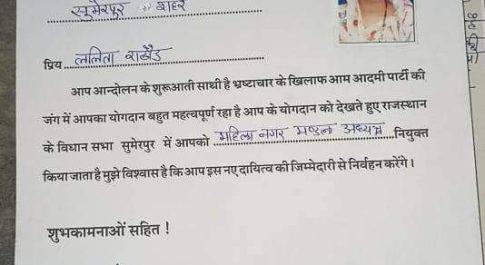 सुमेरपुर शहर
प्रिय ललिता राठौड़
आप आन्दोलन के शुरूआती साथी है भ्रष्टाचार के खिलाफ आम आदमी पार्टी की
जंग में आपका योगदान बहुत महत्वपूर्ण रहा है आप के योगदान को देखते हुए राजस्थान
के विधान सभा सुमेरपुर में आपको महिला नगर मण्डल अध्यक्ष नियुक्त
किया जाता है मुझे विश्वास है कि आप इस नए दायित्व की जिम्मेदारी से निर्वहन करेंगे।
शुभकामनाओं सहित !